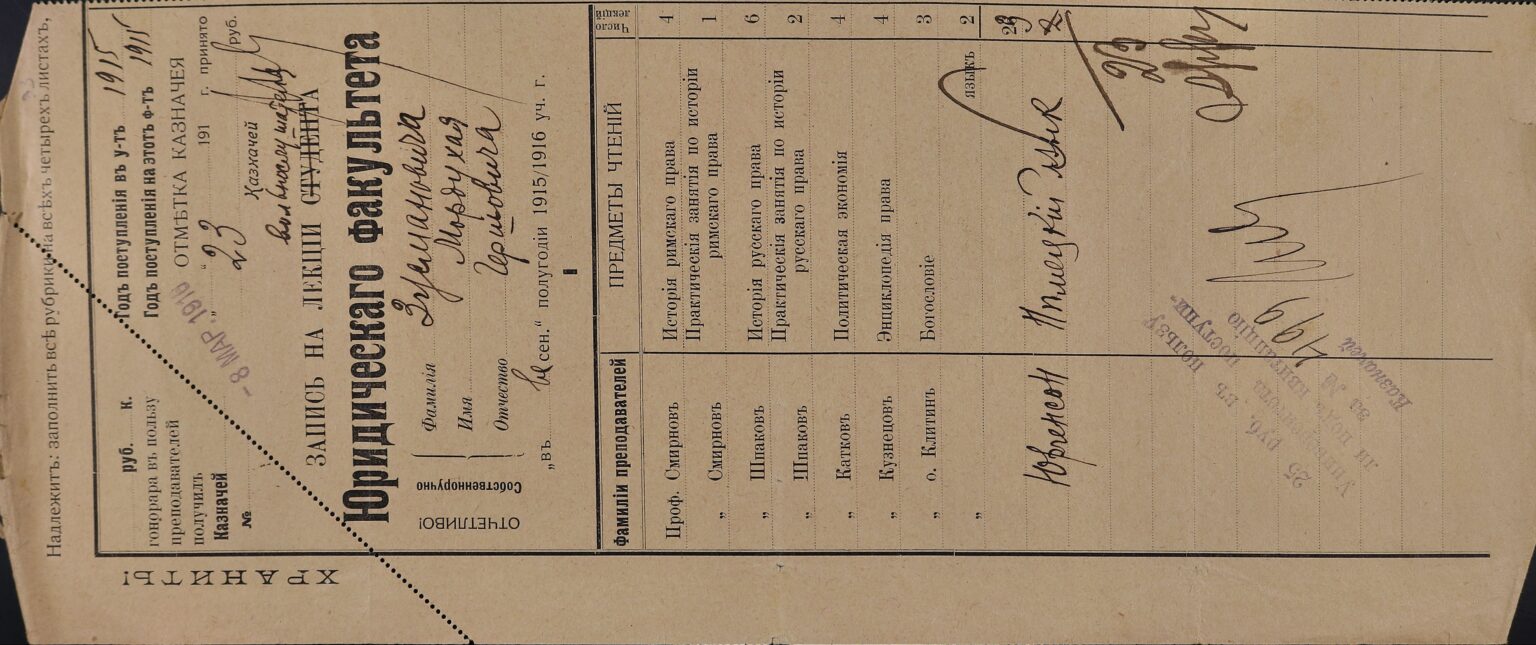 Надлежитъ: заполнить всѣ рубрики на всѣхъ четырехъ листахъ,
ХРАНИТЬ!
руб. к.
гонорара въ пользу
преподавателей
получилъ
Казначей
№
Годъ поступленія въ у-тъ 1915
Годъ поступленія на этотъ ф-тъ 1915
– 8 МАР. 1916
ОТМѢТКА КАЗНАЧЕЯ
„ “ 191 г. принято
23 руб.
23
Казначей
вольнослушателя
ЗАПИСЬ НА ЛЕКЦИ СТУДЕНТА
Юридическаго факультета
ОТЧЕТЛИВО!
Собственноручно
Фамилія
Имя Мордухая
Отчество Гершовича
„въ весен.“ полугодіи 1915/1916 уч. г.
Фамиліи преподавателей ПРЕДМЕТЫ ЧТЕНІЙ Число лекцій
Проф. Смирновъ Исторія римскаго права 4
„ Смирновъ Практическія занятія по исторіи римскаго права 1
„ Шпаковъ Исторія русскаго права 6
„ Шпаковъ Практическія занятія по исторіи русскаго права 2
„ Катковъ Политическая экономія 4
„ Кузнецовъ Энциклопедія права 4
„ о. Клитинъ Богословіе 3
„ языкъ 2
Юргенсон Нѣмецкій Язык 2
23
25 руб. въ пользу
Казначей